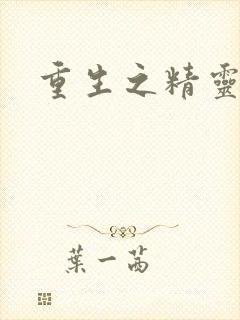 重生之精靈
葉一茜